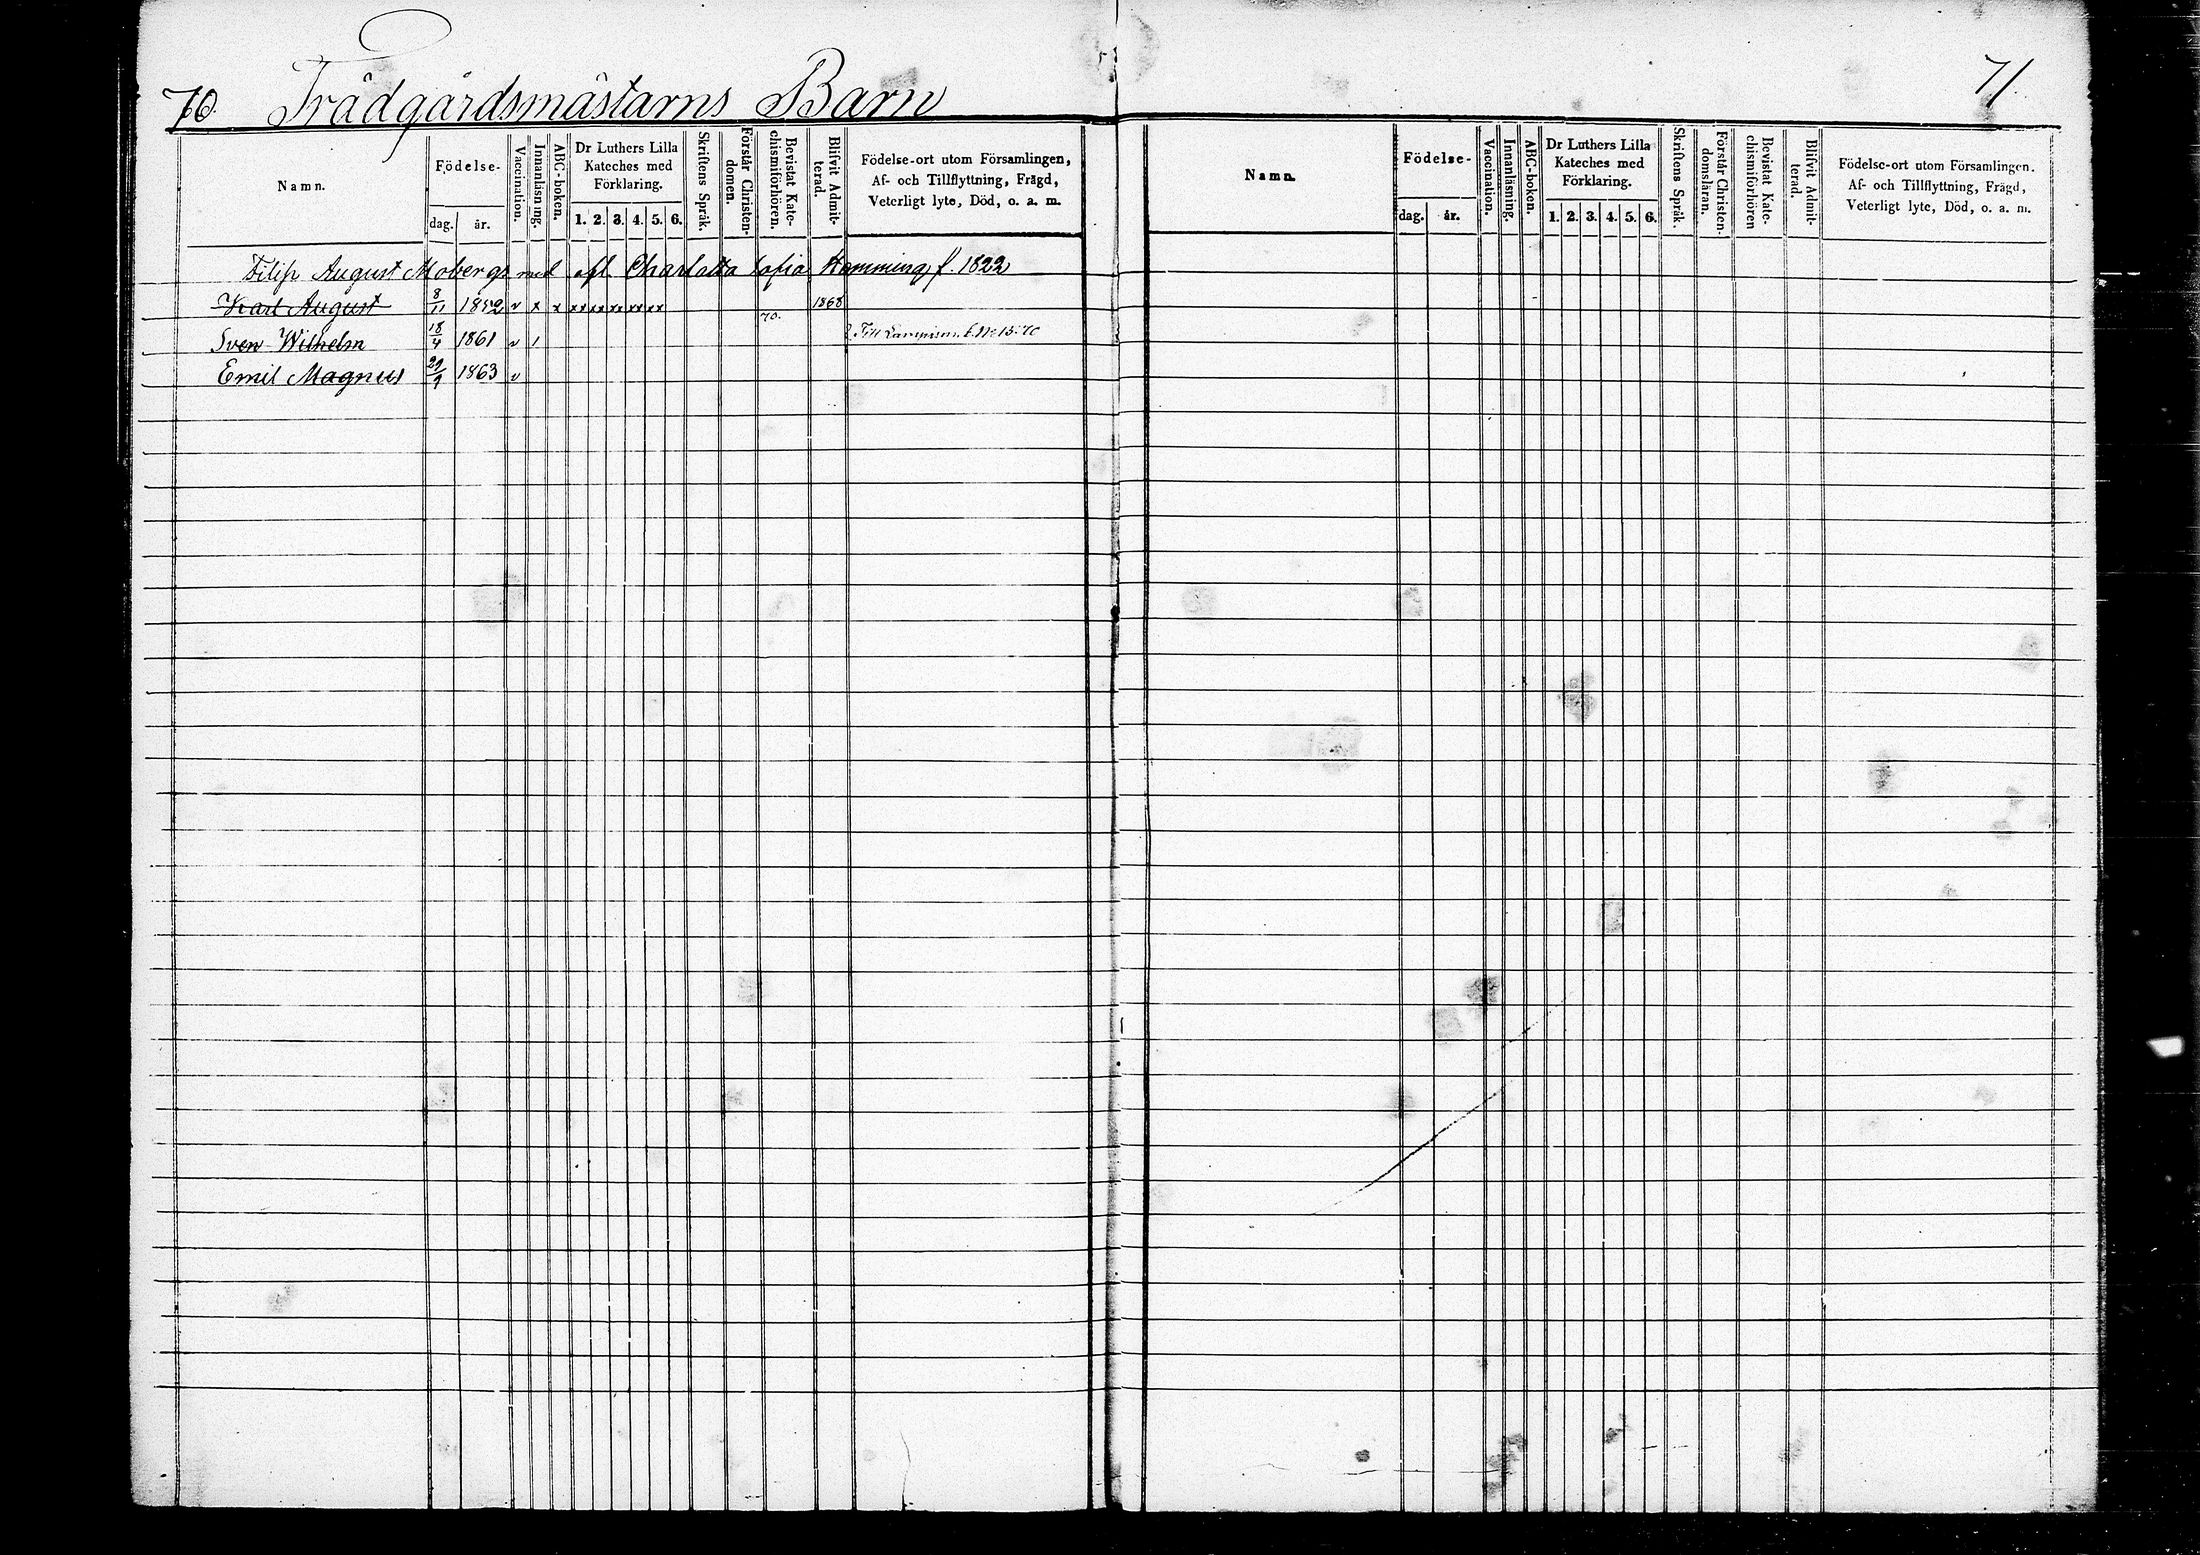 70. Trädgårdsmästarns Barn
71
Namn.
Födelse-
dag. år.
Vaccination.
Innanläsning.
ABC-boken.
Dr Luthers Lilla
Kateches med
Förklaring.
1. 2. 3. 4. 5. 6.
Skriftens Språk.
Förstår Christen-
domen.
Bevistat Kate-
chismiförhören.
Blifvit Admit-
terad.
Födelse-ort utom Församlingen,
Af- och Tillflyttning, Frägd,
Veterligt lyte, Död, o. a. m.
Filip August Mobergs med afl Charlotta Sofia Hemming f. 1822
Karl August 8/11 1852 v x x xx xx xx xx xx 1868
70.
Sven Wilhelm 18/4 1861 v 1 Till
Emil Magnus 29/9 1863 v
Namn.
Födelse-
dag. år.
Vaccination.
Innanläsning.
ABC-boken.
Dr Luthers Lilla
Kateches med
Förklaring.
1. 2. 3. 4. 5. 6.
Skriftens Språk.
Förstår Christen-
domsläran.
Bevistat Kate-
chismiförhören
Blifvit Admit-
terad.
Födelse-ort utom Församlingen.
Af- och Tillflyttning, Frägd,
Veterligt lyte, Död, o. a. m.